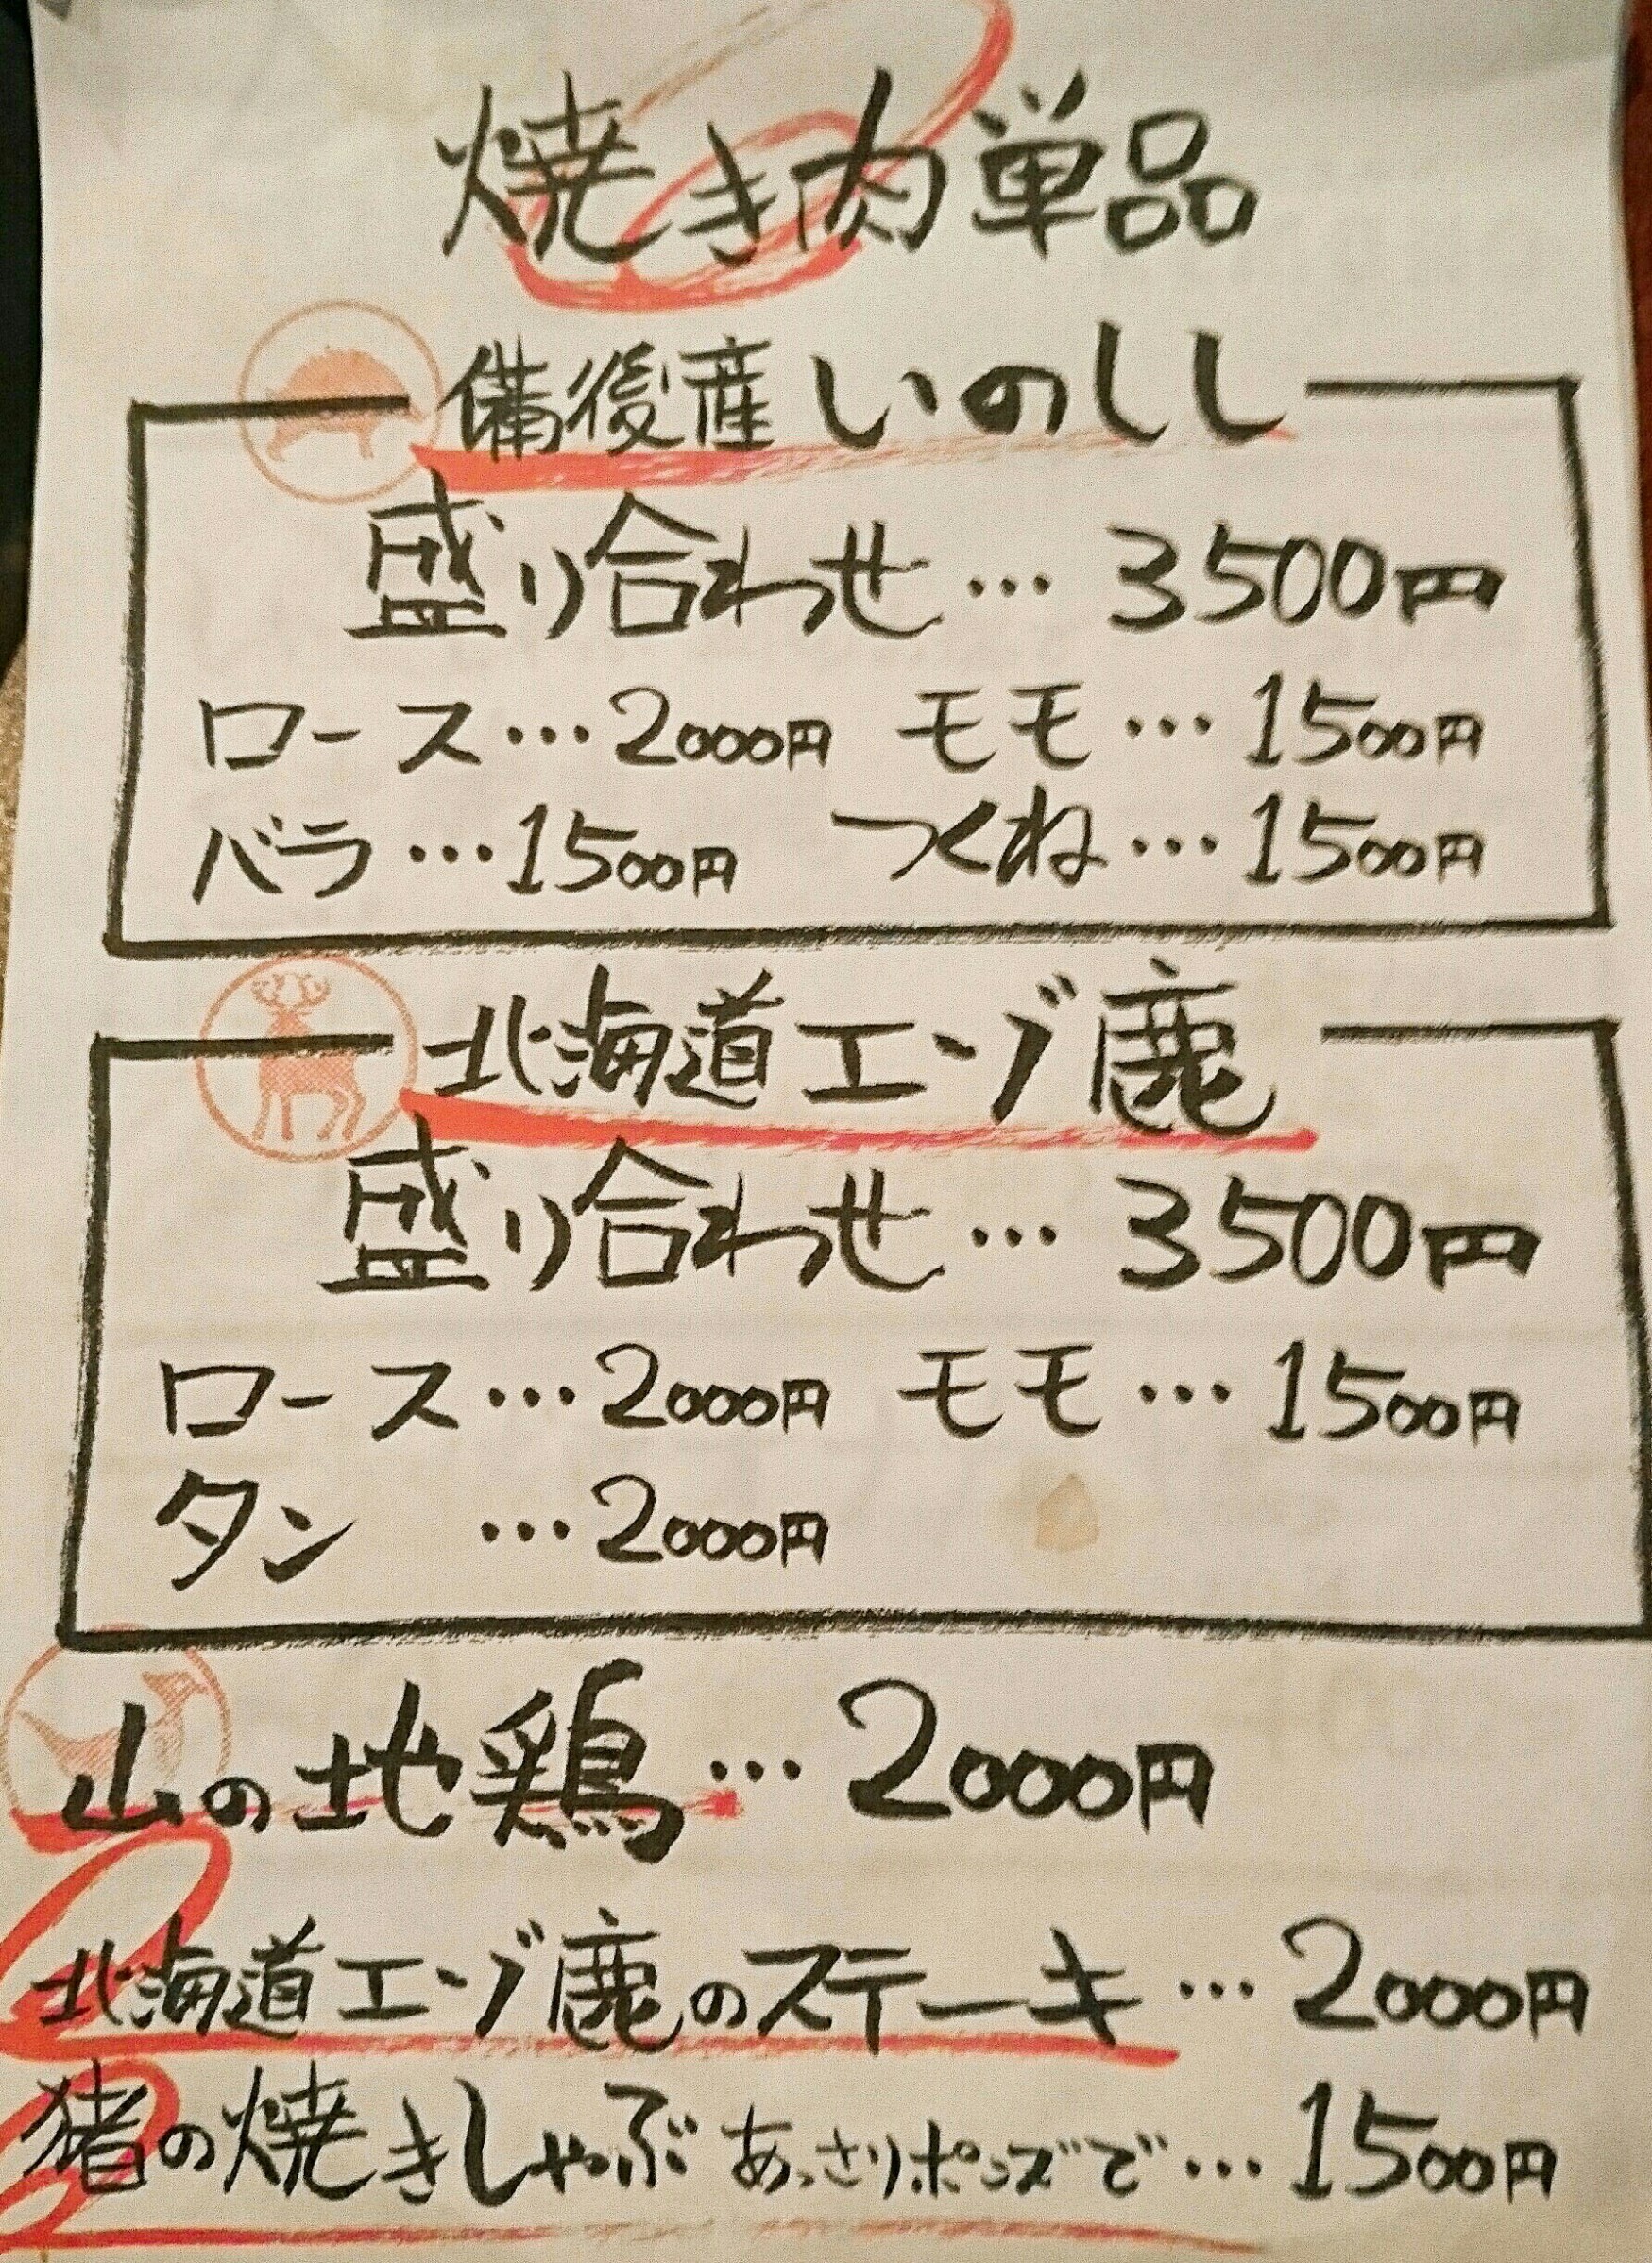 焼き肉単品
備後産いのしし
盛り合わせ…3500円
ロース…2000円 モモ…1500円
バラ…1500円 つくね…1500円
北海道エゾ鹿
盛り合わせ…3500円
ロース…2000円 モモ…1500円
タン …2000円
山の地鶏…2000円
北海道エゾ鹿のステーキ…2000円
猪の焼きしゃぶ あっさりポンズで…1500円